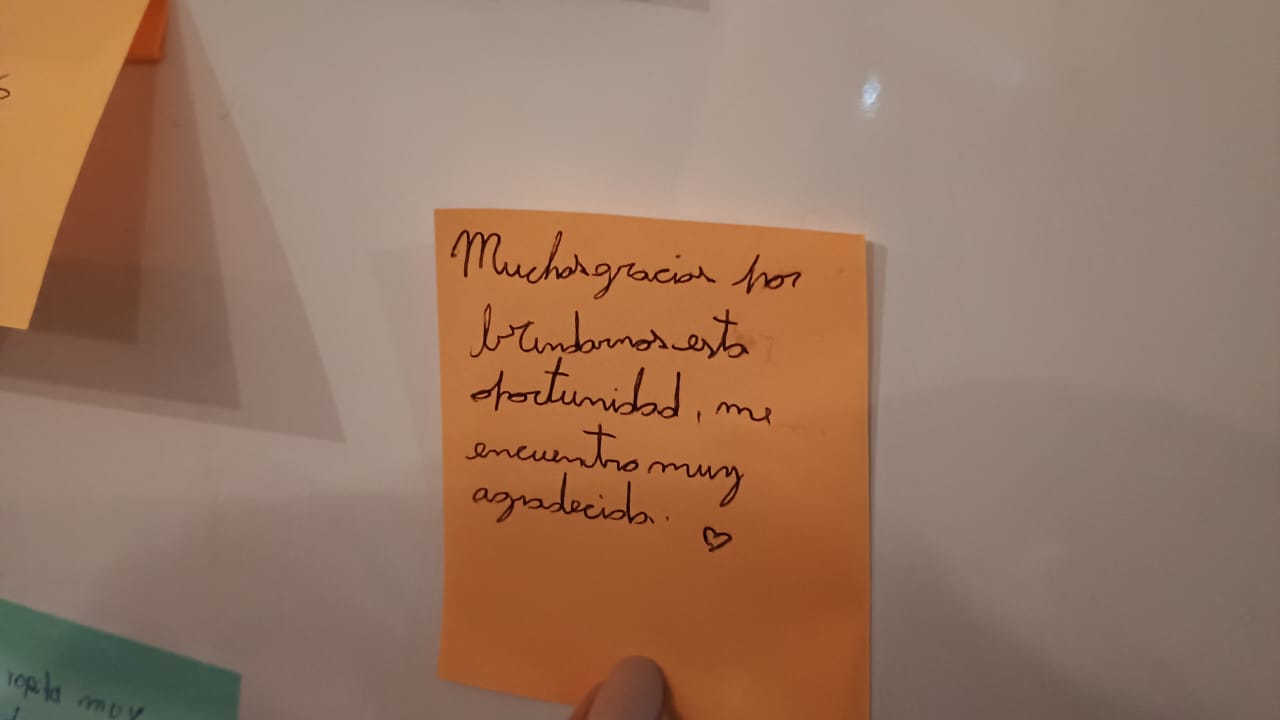 Muchas gracias por
brindarnos esta
oportunidad, me
encuentro muy
agradecida.
muy